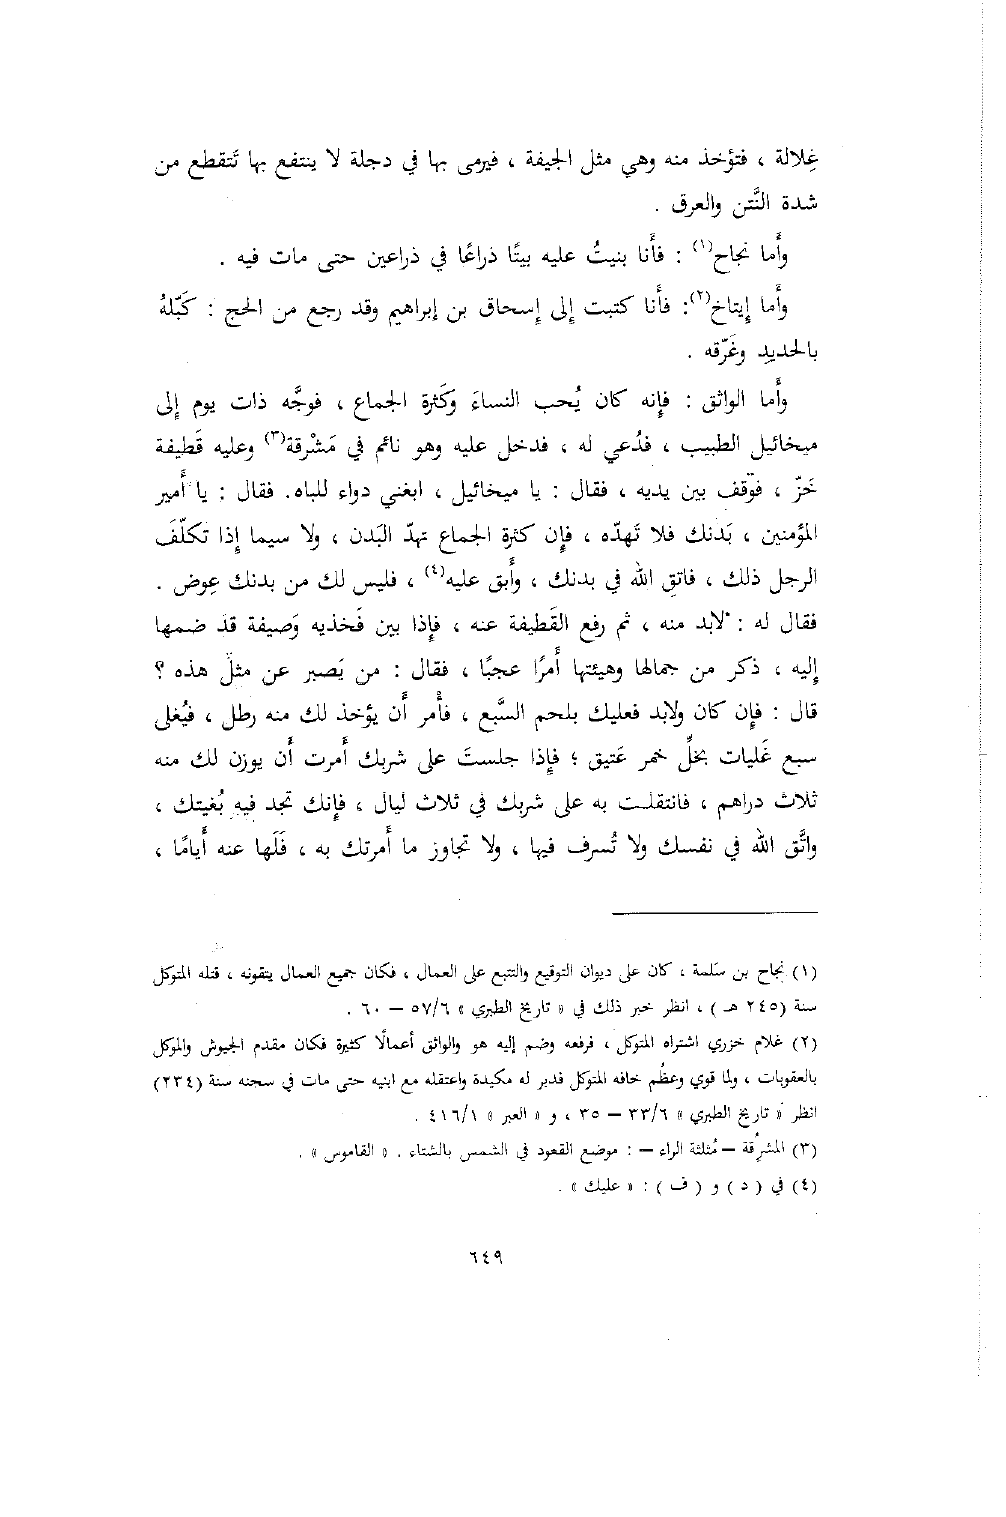 غِلالة ، فتؤخذ منه وهي مثل الجيفة ، فيرمى بها في دجلة لا ينتفع بها تَتقطع من
شدة النَّتن والعرق .
وأَما نجاح(١) : فأَنا بنيتُ عليه بيتًا ذراعًا في ذراعين حتى مات فيه .
وأَما إِيتاخ(٢): فأَنا كتبت إِلى إِسحاق بن إبراهيم وقد رجع من الحج : كَبّلهُ
بالحديدِ وغَرّقه .
وأَما الواثق : فإنه كان يُحب النساءَ وكَثرة الجماع ، فوجَّه ذات يوم إِلى
ميخائيل الطبيب ، فدُعي له ، فدخل عليه وهو نائم في مَشْرقة(٣) وعليه قَطيفة
خَزّ ، فوّقف بين يديه ، فقال : يا ميخائيل ، ابغني دواء للباه. فقال : يا أَمير
المؤمنين ، بَدنك فلا تَهدّه ، فإِن كثرة الجماع تهدّ البَدن ، ولا سيما إِذا تكلّفَ
الرجل ذلك ، فاتقِ الله في بدنك ، وأَبق عليه(٤) ، فليس لك من بدنك عِوض .
فقال له : لابد منه ، ثم رفع القَطيفة عنه ، فإِذا بين فَخذيه وَصيفة قد ضمها
إِليه ، ذكر من جمالها وهيئتها أَمرًا عجبًا ، فقال : من يَصبر عن مثل هذه ؟
قال : فإِن كان ولابد فعليك بلحم السَّبع ، فأْمر أَن يؤخذ لك منه رطل ، فيُغلى
سبع غَليات بخلِّ خمر عَتيق ؛ فإِذا جلستَ على شربك أَمرت أَن يوزن لك منه
ثلاث دراهم ، فانتقلت به على شربك في ثلاث ليال ، فإِنك تجد فيه بُغيتك ،
واتَّق الله في نفسك ولا تُسرف فيها ، ولا تجاوز ما أَمرتك به ، فَلَها عنه أَيامًا ،
(١) نجاح بن سَلمة ، كان على ديوان التوقيع والتتبع على العمال ، فكان جميع العمال يتقونه ، قتله المتوكل
سنة (٢٤٥ هـ ) ، انظر خبر ذلك في « تاريخ الطبري » ٥٧/٦ – ٦٠ .
(٢) غلام خزري اشتراه المتوكل ، فرفعه وضم إليه هو والواثق أعمالًا كثيرة فكان مقدم الجيوش والموكل
بالعقوبات ، ولما قوي وعظُم خافه المتوكل فدبر له مكيدة واعتقله مع ابنيه حتى مات في سجنه سنة (٢٣٤)
انظر « تاريخ الطبري » ٣٣/٦ – ٣٥ ، و « العبر » ٤١٦/١ .
(٣) المشرُقة – مُثلثة الراء – : موضع القعود في الشمس بالشتاء . « القاموس » .
(٤) في ( د ) و ( ف ) : « عليك » .
٦٤٩